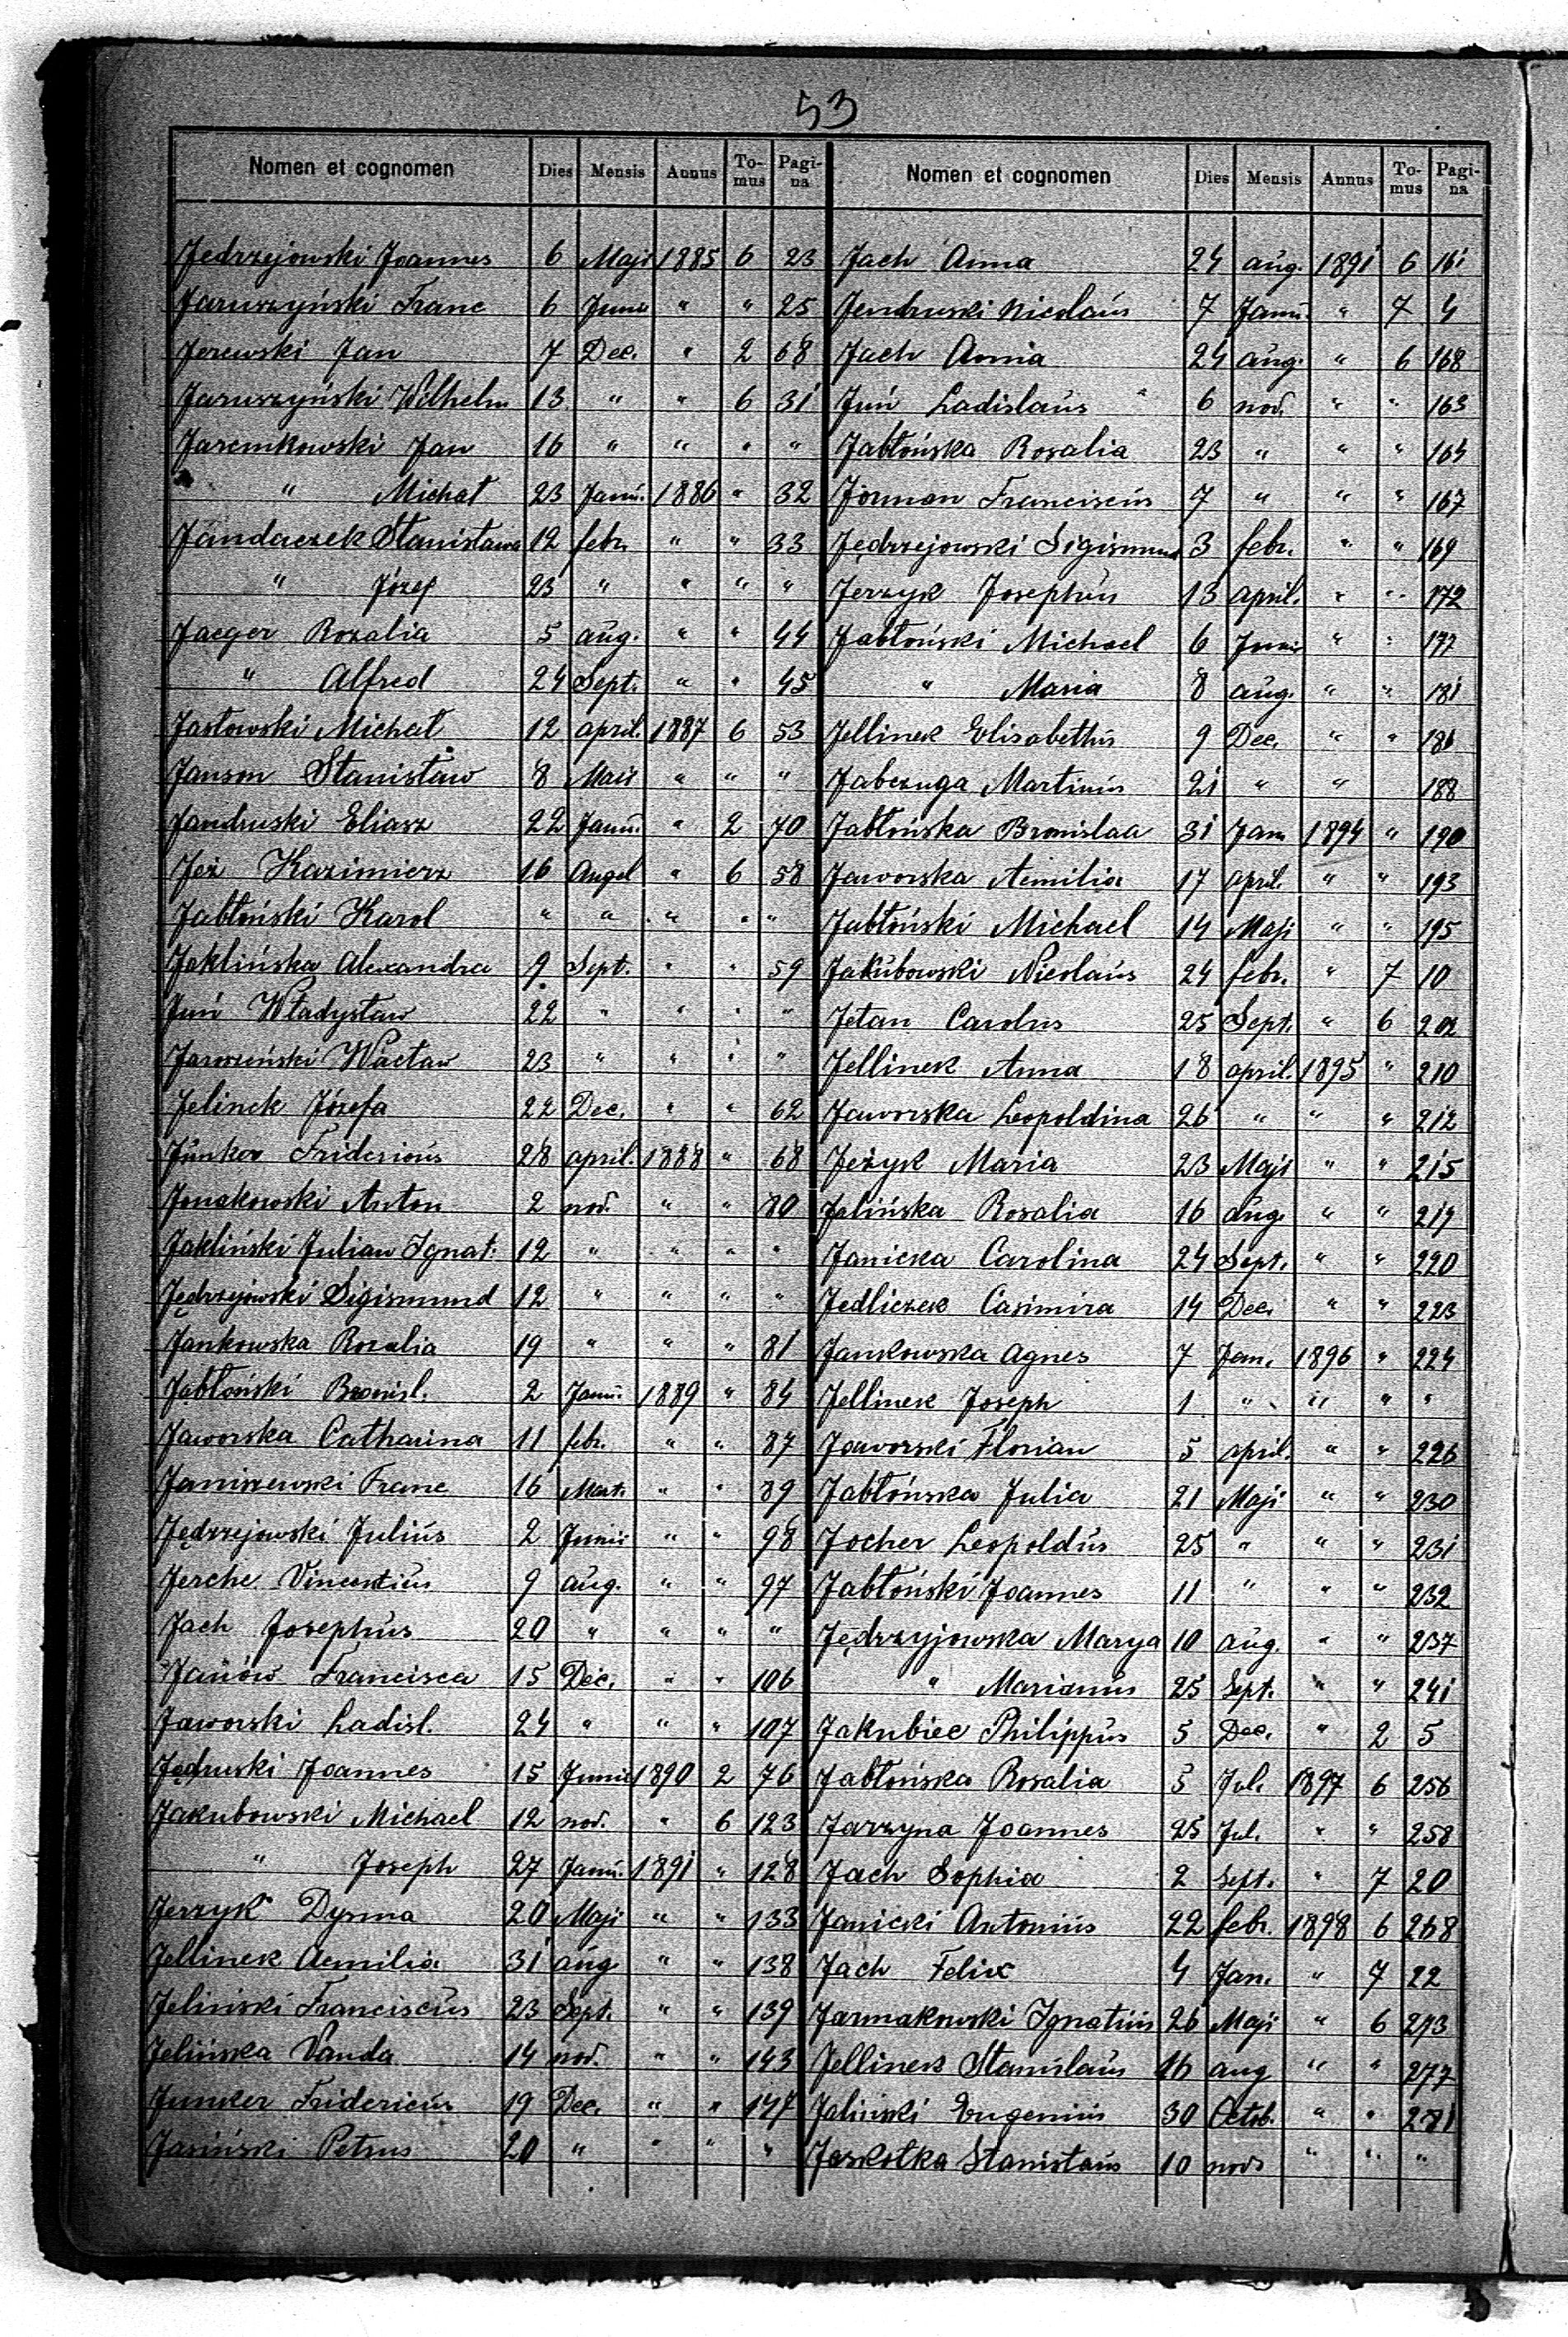 53
Nomen et cognomen Dies Mensis Annus To-mus Pagi-na
Jedrzejowski Joannes 6 Maji 1885 6 23
Jaruszyński Franc 6 Junii " " 25
Jezewski Jan 7 Dec. " 2 68
Jaruszyński Wilhelm 13 " " 6 31
Jaremkowski Jan 16 " " " "
" Michał 23 Janu. 1886 " 32
Jandaczek Stanisława 12 febr. " " 33
" Józef 23 " " " "
Jaeger Rozalia 5 aug. " " 44
" Alfred 24 Sept. " " 45
Jastowski Michał 12 april. 1887 6 53
Janson Stanisław 8 Maii " " "
Jandruski Eliasz 22 Janu. " 2 70
Jeż Kazimierz 16 " 6 58
Jabłoński Karol " " " " "
Jaklińska Alexandra 9 Sept. " " 59
Juń Władysław 22 " " " "
Jaroszeński Wacław 23 " " " "
Jelinek Józefa 22 Dec. " " 62
Junker Fridericus 28 april. 1888 " 68
Jonakowski Anton 2 nov. " " 80
Jakliński Julian Ignat. 12 " " " "
Jędrzejowski Sigismund 12 " " " "
Jankowska Rozalia 19 " " " 81
Jabłoński Bronisl. 2 Janu. 1889 " 84
Jaworska Catharina 11 febr. " " 87
Janiszewski Franc 16 Mart. " " 89
Jędrzejowski Julius 2 Junii " " 98
Jerche Vincentius 9 aug. " " 97
Jach Josephus 20 " " " "
Janów Francisca 15 Dec. " " 106
Jaworski Ladisl. 24 " " " 107
Jędruski Joannes 15 Junii 1890 2 76
Jakubowski Michael 12 nov. " 6 123
" Joseph 27 Janu. 1891 " 128
Jerzyk Dysma 20 Maji " " 133
Jellinek Aemilia 31 aug " " 138
Jeliński Franciscus 23 Sept. " " 139
Jelińska Vanda 14 nov. " " 143
Junker Fridericus 19 Dec. " " 147
Jasiński Petrus 20 " " " "
Nomen et cognomen Dies Mensis Annus To-mus Pagi-na
Jach Anna 24 aug. 1891 6 161
Jendruski Nicolaus 7 Janu. " 7 4
Jach Anna 24 aug. " 6 168
Juń Ladislaus 6 nov. " " 163
Jabłońska Rosalia 23 " " " 164
Jorman Franciscus 7 " " " 167
Jędrzejowski Sigismund 3 febr. " " 169
Jerzyk Josephus 13 april. " " 172
Jabłoński Michael 6 Junii " " 177
" Maria 8 aug. " " 181
Jellinek Elisabethus 9 Dec. " " 186
Jabczuga Martinus 21 " " 188
Jabłońska Bronislaa 31 Janu 1894 " 190
Jaworska Aemilia 17 april. " " 193
Jabłoński Michael 14 Maji " " 195
Jakubowski Nicolaus 24 febr. " 7 10
Jetan Carolus 25 Sept. " 6 202
Jellinek Anna 18 april. 1895 " 210
Jaworska Leopoldina 26 " " " 212
Jeżyk Maria 23 Maji " " 215
Jalińska Rosalia 16 aug. " " 219
Janicka Carolina 24 Sept. " " 220
Jedliczek Casimira 14 Dec. " " 223
Jankowska Agnes 7 Jan. 1896 " 224
Jellinek Joseph 1 " " " "
Jaworski Florian 5 april. " " 226
Jabłońska Julia 21 Maji " " 230
Jocher Leopoldus 25 " " " 231
Jabłoński Joannes 11 " " " 232
Jędrzyjowska Marya 10 aug. " " 237
" Marianus 25 Sept. " " 241
Jakubiec Philippus 5 Dec. " 2 5
Jabłońska Rosalia 5 Jul. 1897 6 256
Jarzyna Joannes 25 Jul. " " 258
Jach Sophia 2 Sept. " 7 20
Janicki Antonius 22 febr. 1898 6 268
Jach Felix 4 Jan. " 7 22
Jarmakowski Ignatius 26 Maji " 6 273
Jellinek Stanislaus 16 aug " " 277
Jaliński Eugenius 30 Octob. " " 281
Jaskołka Stanisłaus 10 nov. " " "